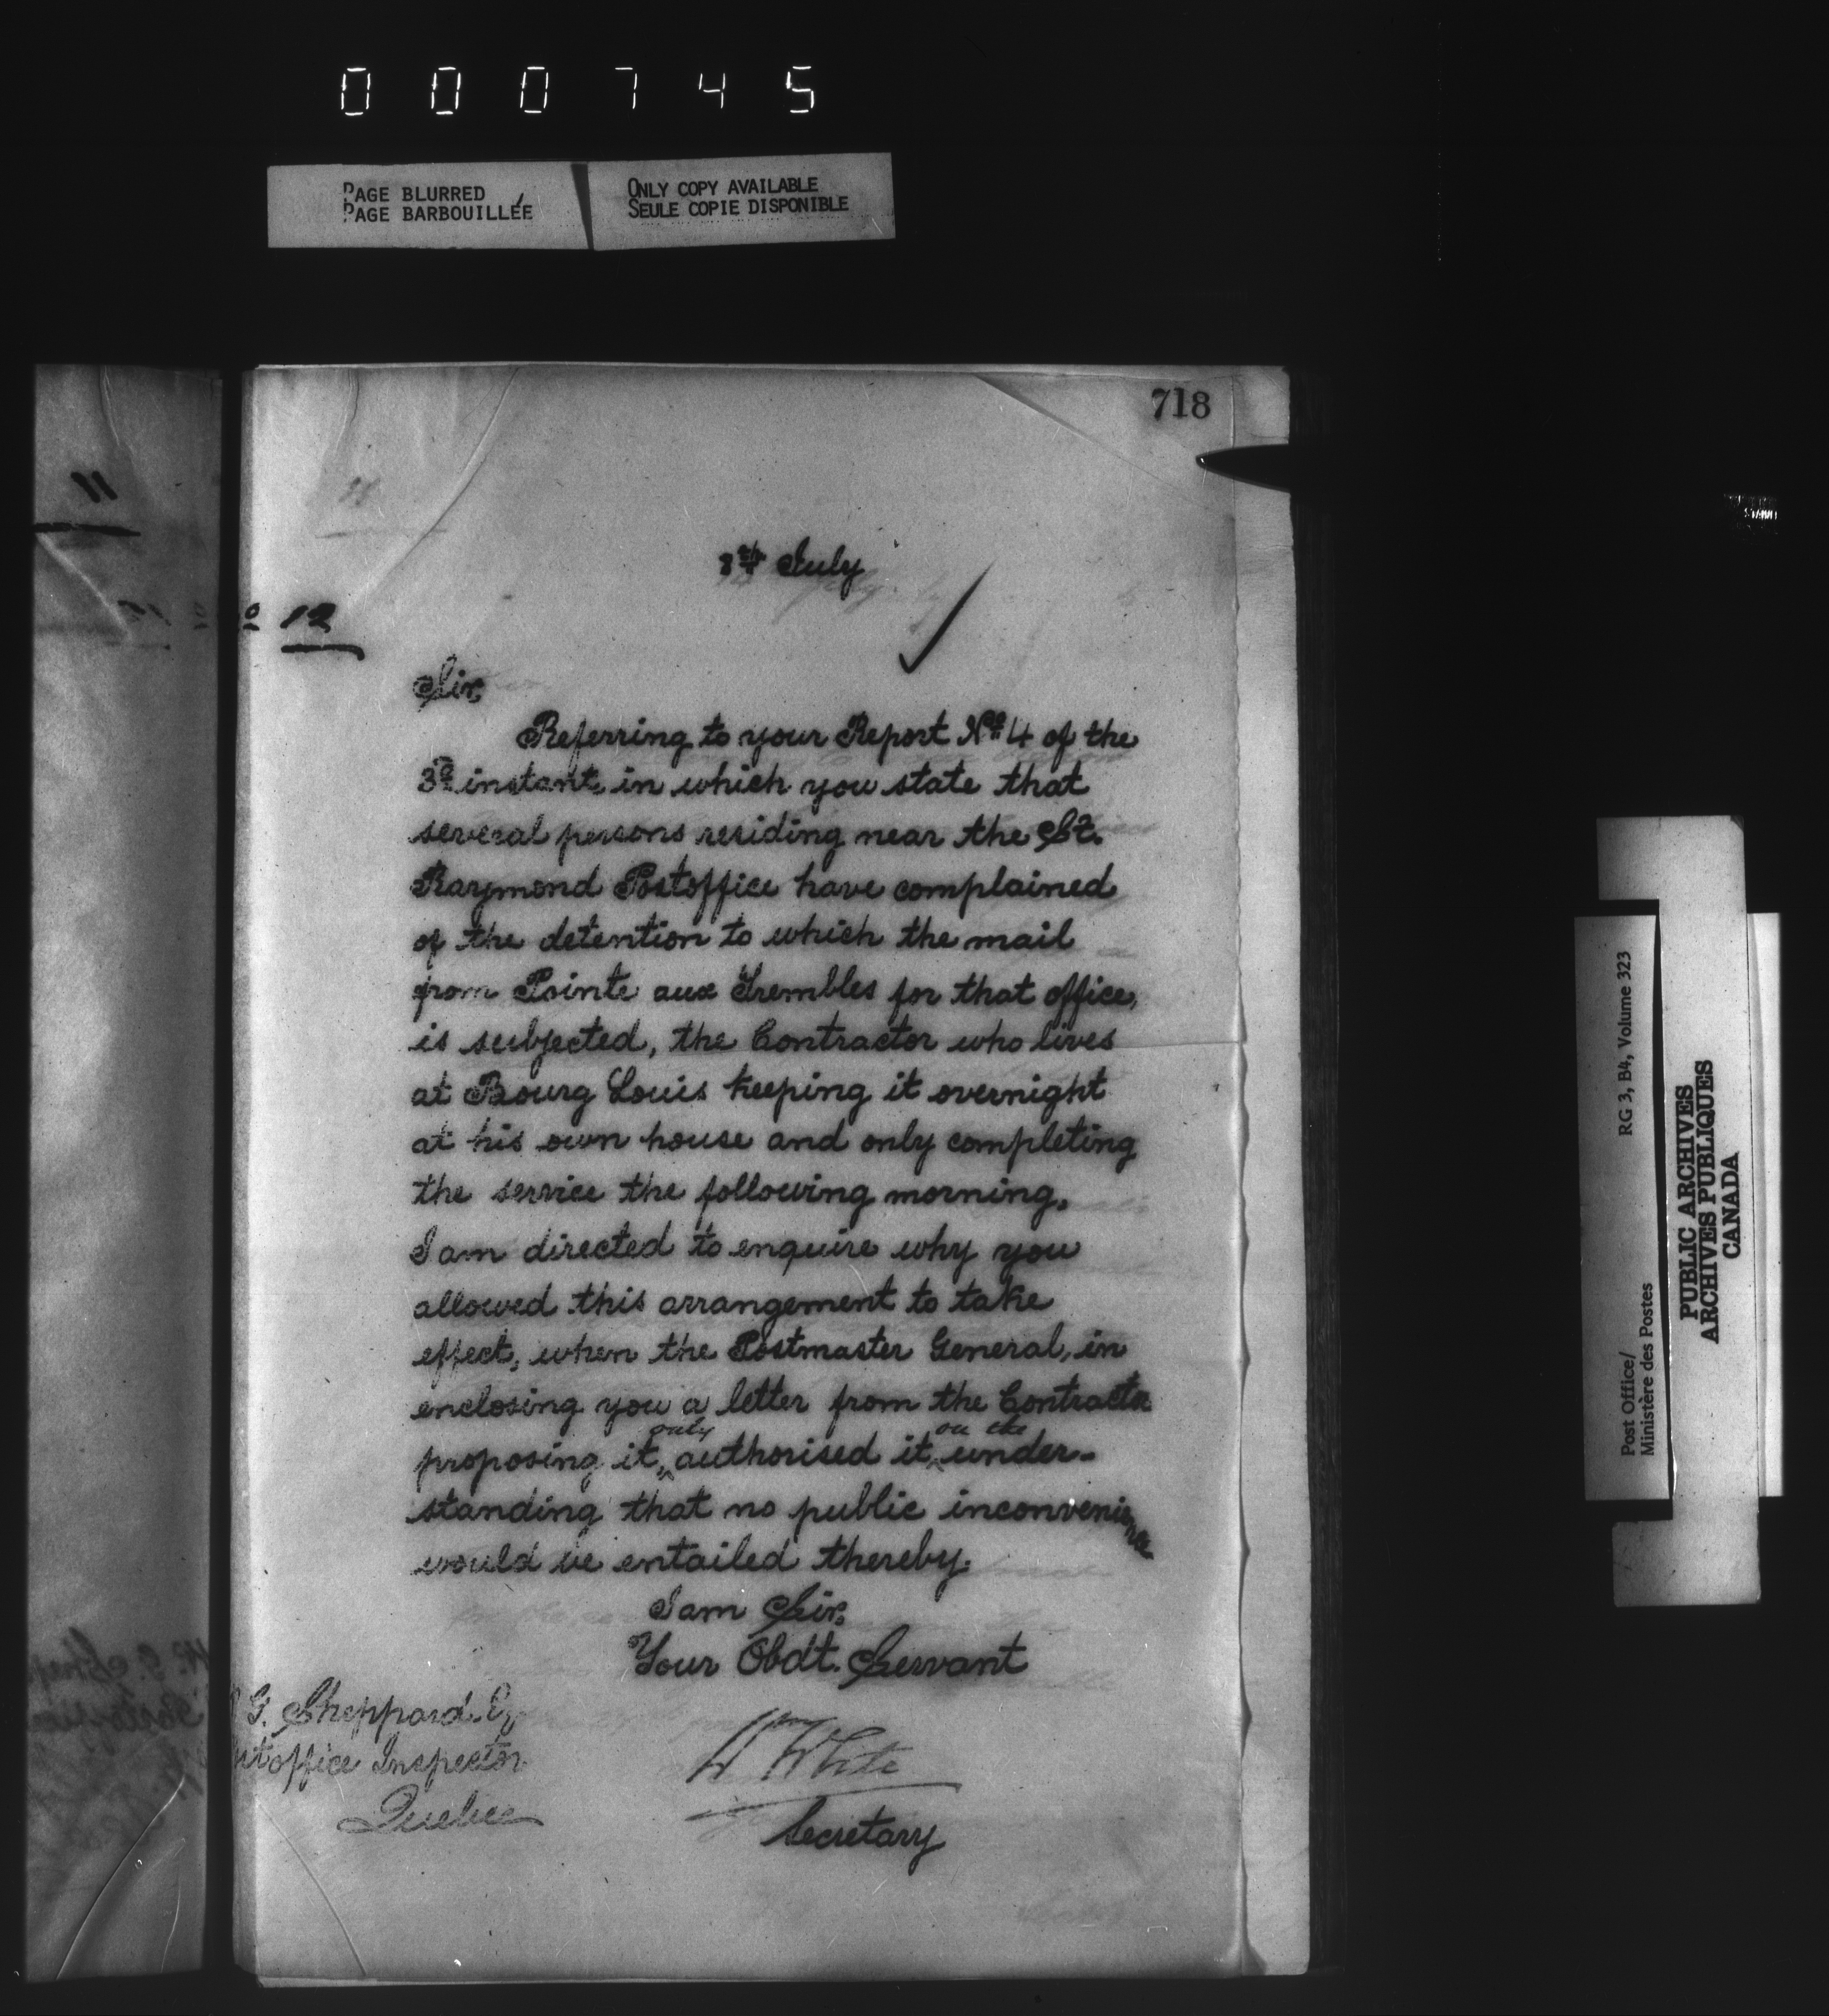 000745
PAGE BLURRED
PAGE BARBOUILLÉE
ONLY COPY AVAILABLE
SEULE COPIE DISPONIBLE
718
11
July
o 12
Sir,
Referring to your Report No 4 of the
3d instant in which you state that
several persons residing near the St.
Raymond Postoffice have complained
of the detention to which the mail
from Pointe aux Trembles for that office,
is subjected, the Contractor who lives
at Bourg Louis keeping it overnight
at his own house and only completing
the service the following morning,
I am directed to enquire why you
allowed this arrangement to take
effect, when the Postmaster General, in
enclosing you a letter from the Contractor
proposing it, only authorised it on the under-
standing that no public inconvenience
would be entailed thereby.
I am Sir,
Your Obdt. Servant
W White
Secretary
G. Sheppard. Eq
stoffice Inspector
Quebec
Post Office/
Ministère des Postes
RG 3, B4, Volume 323
PUBLIC ARCHIVES
ARCHIVES PUBLIQUES
CANADA